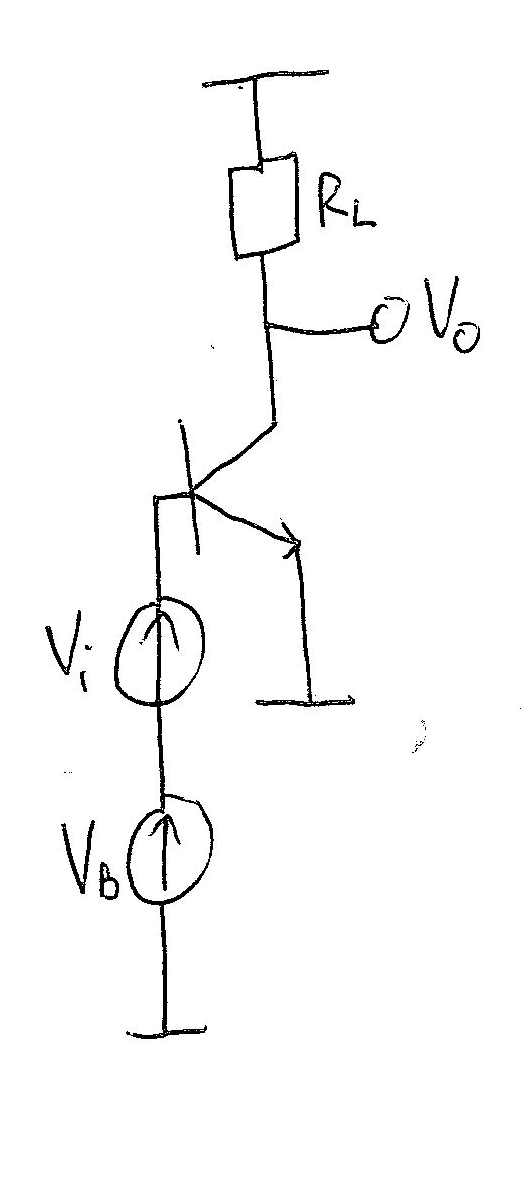 R_L
V_o
V_i
V_B